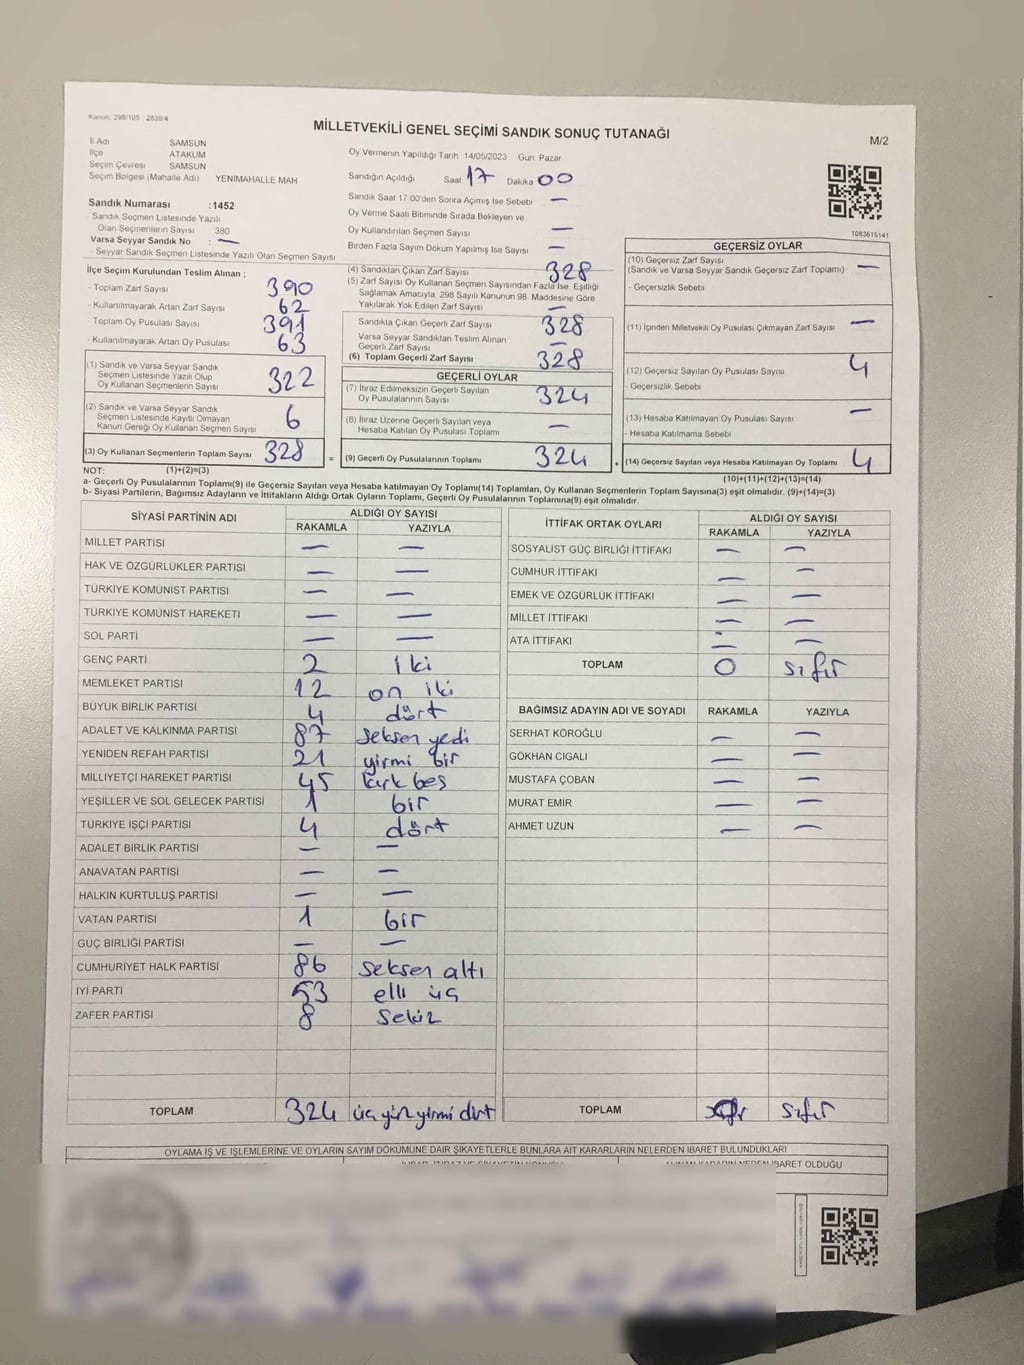 Kanun: 298/105 , 2839/4
MİLLETVEKİLİ GENEL SEÇİMİ SANDIK SONUÇ TUTANAĞI
M/2
İl Adı SAMSUN
İlçe ATAKUM
Seçim Çevresi SAMSUN
Seçim Bölgesi (Mahalle Adı) YENİMAHALLE MAH
Sandık Numarası :1452
- Sandık Seçmen Listesinde Yazılı
Olan Seçmenlerin Sayısı : 380
Varsa Seyyar Sandık No : —
- Seyyar Sandık Seçmen Listesinde Yazılı Olan Seçmen Sayısı
Oy Vermenin Yapıldığı Tarih 14/05/2023 Gün: Pazar
Sandığın Açıldığı Saat 17 Dakika 00
Sandık Saat 17.00'den Sonra Açımış İse Sebebi —
Oy Verme Saati Bitiminde Sırada Bekleyen ve
Oy Kullandırılan Seçmen Sayısı —
Birden Fazla Sayım Döküm Yapılmış İse Sayısı —
1083615141
İlçe Seçim Kurulundan Teslim Alınan ;
- Toplam Zarf Sayısı 390
- Kullanılmayarak Artan Zarf Sayısı 62
- Toplam Oy Pusulası Sayısı 391
- Kullanılmayarak Artan Oy Pusulası 63
(1) Sandık ve Varsa Seyyar Sandık
Seçmen Listesinde Yazılı Olup
Oy Kullanan Seçmenlerin Sayısı 322
(2) Sandık ve Varsa Seyyar Sandık
Seçmen Listesinde Kayıtlı Olmayan
Kanun Gereği Oy Kullanan Seçmen Sayısı 6
(3) Oy Kullanan Seçmenlerin Toplam Sayısı 328 =
(4) Sandıktan Çıkan Zarf Sayısı 328
(5) Zarf Sayısı Oy Kullanan Seçmen Sayısından Fazla İse, Eşitliği
Sağlamak Amacıyla, 298 Sayılı Kanunun 98. Maddesine Göre
Yakılarak Yok Edilen Zarf Sayısı —
Sandıkta Çıkan Geçerli Zarf Sayısı 328
Varsa Seyyar Sandıktan Teslim Alınan
Geçerli Zarf Sayısı —
(6) Toplam Geçerli Zarf Sayısı 328
GEÇERLİ OYLAR
(7) İtiraz Edilmeksizin Geçerli Sayılan
Oy Pusulalarının Sayısı 324
(8) İtiraz Üzerine Geçerli Sayılan veya
Hesaba Katılan Oy Pusulası Toplamı —
(9) Geçerli Oy Pusulalarının Toplamı 324 +
GEÇERSİZ OYLAR
(10) Geçersiz Zarf Sayısı
(Sandık ve Varsa Seyyar Sandık Geçersiz Zarf Toplamı) —
- Geçersizlik Sebebi
(11) İçinden Milletvekili Oy Pusulası Çıkmayan Zarf Sayısı —
(12) Geçersiz Sayılan Oy Pusulası Sayısı 4
- Geçersizlik Sebebi
(13) Hesaba Katılmayan Oy Pusulası Sayısı —
- Hesaba Katılmama Sebebi
(14) Geçersiz Sayılan veya Hesaba Katılmayan Oy Toplamı 4
NOT: (1)+(2)=(3) (10)+(11)+(12)+(13)=(14)
a- Geçerli Oy Pusulalarının Toplamı(9) ile Geçersiz Sayılan veya Hesaba katılmayan Oy Toplamı(14) Toplamları, Oy Kullanan Seçmenlerin Toplam Sayısına(3) eşit olmalıdır. (9)+(14)=(3)
b- Siyasi Partilerin, Bağımsız Adayların ve İttifakların Aldığı Ortak Oyların Toplamı, Geçerli Oy Pusulalarının Toplamına(9) eşit olmalıdır.
SİYASİ PARTİNİN ADI ALDIĞI OY SAYISI
RAKAMLA YAZIYLA
MİLLET PARTİSİ — —
HAK VE ÖZGÜRLÜKLER PARTİSİ — —
TÜRKİYE KOMÜNİST PARTİSİ — —
TÜRKİYE KOMÜNİST HAREKETİ — —
SOL PARTİ — —
GENÇ PARTİ 2 iki
MEMLEKET PARTİSİ 12 on iki
BÜYÜK BİRLİK PARTİSİ 4 dört
ADALET VE KALKINMA PARTİSİ 87 seksen yedi
YENİDEN REFAH PARTİSİ 21 yirmi bir
MİLLİYETÇİ HAREKET PARTİSİ 45 kırk beş
YEŞİLLER VE SOL GELECEK PARTİSİ 1 bir
TÜRKİYE İŞÇİ PARTİSİ 4 dört
ADALET BİRLİK PARTİSİ — —
ANAVATAN PARTİSİ — —
HALKIN KURTULUŞ PARTİSİ — —
VATAN PARTİSİ 1 bir
GÜÇ BİRLİĞİ PARTİSİ — —
CUMHURİYET HALK PARTİSİ 86 seksen altı
İYİ PARTİ 53 elli üç
ZAFER PARTİSİ 8 sekiz
TOPLAM 324 üç yüz yirmi dört
İTTİFAK ORTAK OYLARI ALDIĞI OY SAYISI
RAKAMLA YAZIYLA
SOSYALİST GÜÇ BİRLİĞİ İTTİFAKI — —
CUMHUR İTTİFAKI — —
EMEK VE ÖZGÜRLÜK İTTİFAKI — —
MİLLET İTTİFAKI — —
ATA İTTİFAKI — —
TOPLAM 0 sıfır
BAĞIMSIZ ADAYIN ADI VE SOYADI RAKAMLA YAZIYLA
SERHAT KÖROĞLU — —
GÖKHAN CIGALI — —
MUSTAFA ÇOBAN — —
MURAT EMİR — —
AHMET UZUN — —
TOPLAM sıfır
OYLAMA İŞ VE İŞLEMLERİNE VE OYLARIN SAYIM DÖKÜMÜNE DAİR ŞİKAYETLERLE BUNLARA AİT KARARLARIN NELERDEN İBARET BULUNDUKLARI
İBARET OLDUĞU